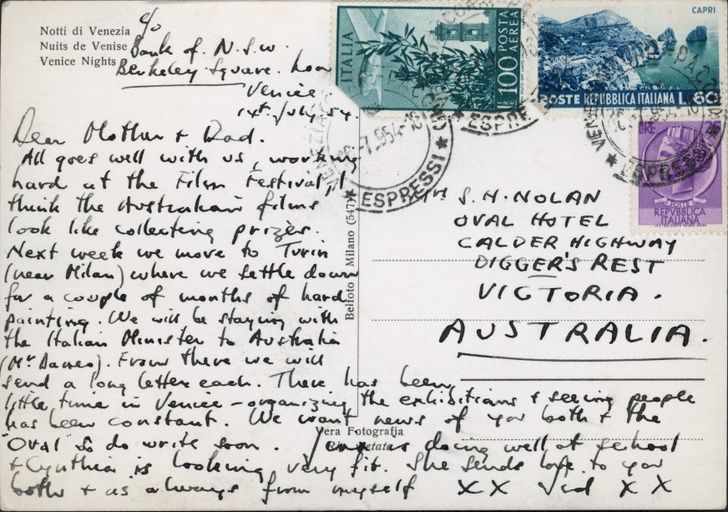 Notti di Venezia
Nuits de Venise
Venice Nights
c/o
Bank of N.S.W.
Berkeley Square. Lon
Venice
14th July 54.
Dear Mother & Dad.
All goes well with us, working
hard at the Film Festival. I
think the Australian films
look like collecting prizes.
Next week we move to Turin
(near Milan) where we settle down
for a couple of months of hard
painting. We will be staying with
the Italian Minister to Australia
(Mr Daneo). From there we will
send a long letter each. There has been
little time in Venice - organizing the exhibitions & seeing people
has been constant. We want news of you both & the
'Oval' so do write soon. is doing well at school
& Cynthia is looking very fit. She sends love to you
both & as always from myself X X Sid X X
Belfoto - Milano
Vera Fotografia
Riv
etata
S. H. NOLAN
OVAL HOTEL
CALDER HIGHWAY
DIGGER'S REST
VICTORIA.
AUSTRALIA.
ITALIA
POSTA AEREA
L. 100
CAPRI
POSTE REPUBBLICA ITALIANA L. 60
LIRE
POSTE
REPVBBLICA
ITALIANA
ESPRESSI
ESPRE
ESPRESSI